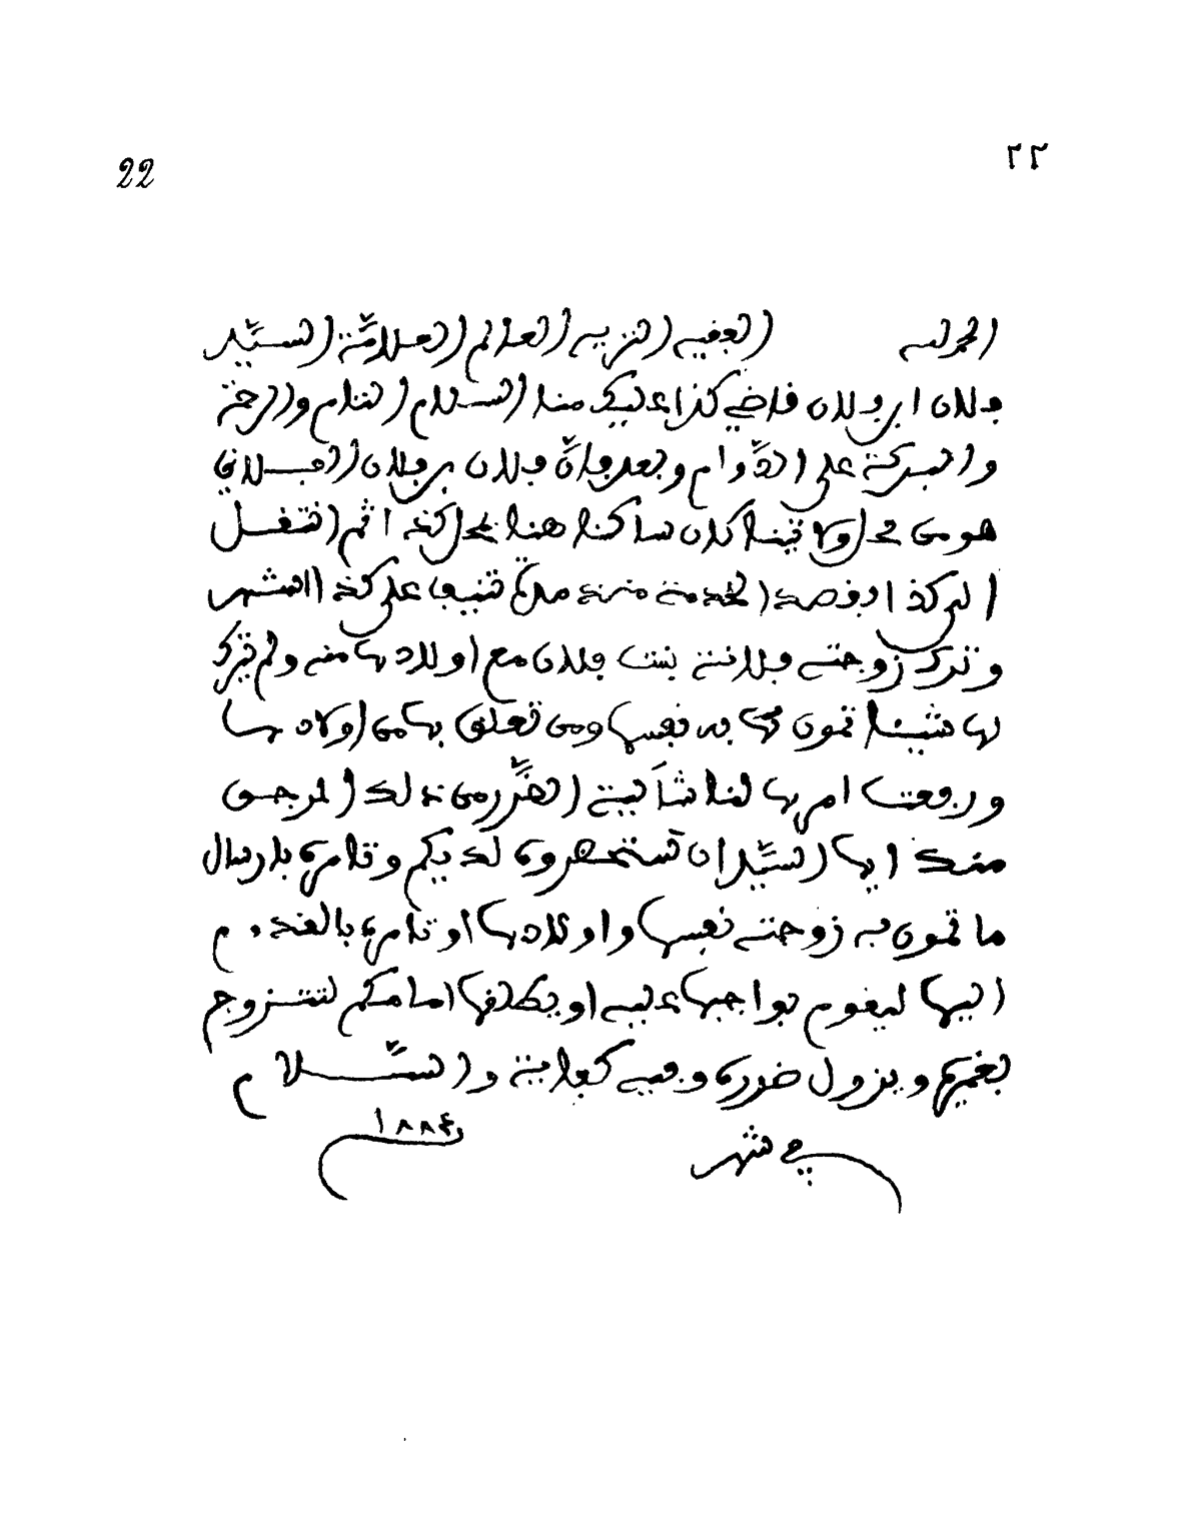 22 ٢٢
الحمد لله الفقيه النزيه العالم العلامّة السيّد
فلان ابن فلان قاضي كذا عليك منا السلام التام والرحمة
والبركة على الدّوام وبعد فإنّ فلان بن فلان الفلاني
هو من محل ولايتنا كان ساكنا هنا بمحل كذا ثم انتقل
الى كذا بقصد الخدمة منذ مدة تنيف على كذا اشهر
وترك زوجته فلانة بنت فلان مع اولادها منه ولم يترك
لها شيئا تمون به نفسها ومن تعلق بها من اولادها
ورفعت امرها لنا شاكية الضّرر من ذلك المرجو
منك ايها السيّد ان تستحضروه لديكم وتامره بارسال
ما تمون به زوجته نفسها واولادها او تامره بالقدوم
اليها ليقوم بواجبها عليه او يطلقها امامكم لتتزوج
بغيره ويزول ضررها وفيه كفاية والسّلام
في شهر ١٨٨٤